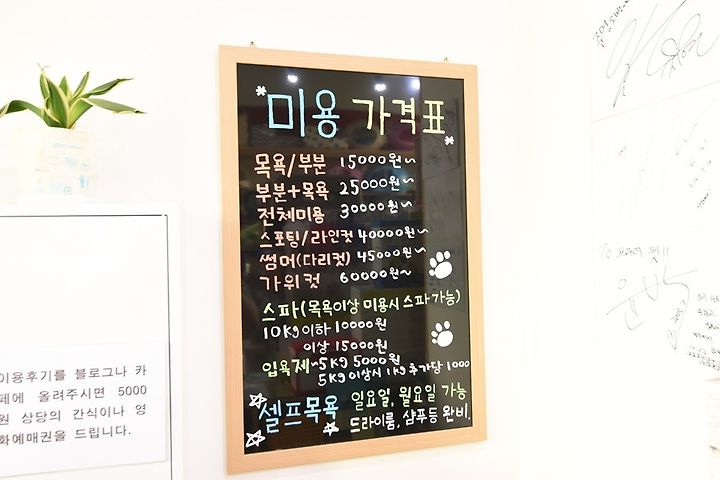 미용 가격표
목욕/부분 15000원~
부분+목욕 25000원~
전체미용 30000원~
스포팅/라인컷 40000원~
썸머(다리컷) 45000원~
가위컷 60000원~
스파(목욕이상 미용시 스파 가능)
10kg이하 10000원
이상 15000원
입욕제~5kg 5000원
5kg이상시 1kg 추가당 1000
셀프목욕 일요일, 월요일 가능
드라이룸, 샴푸등 완비.
이용후기를 블로그나 카
페에 올려주시면 5000
원 상당의 간식이나 영
화예매권을 드립니다.